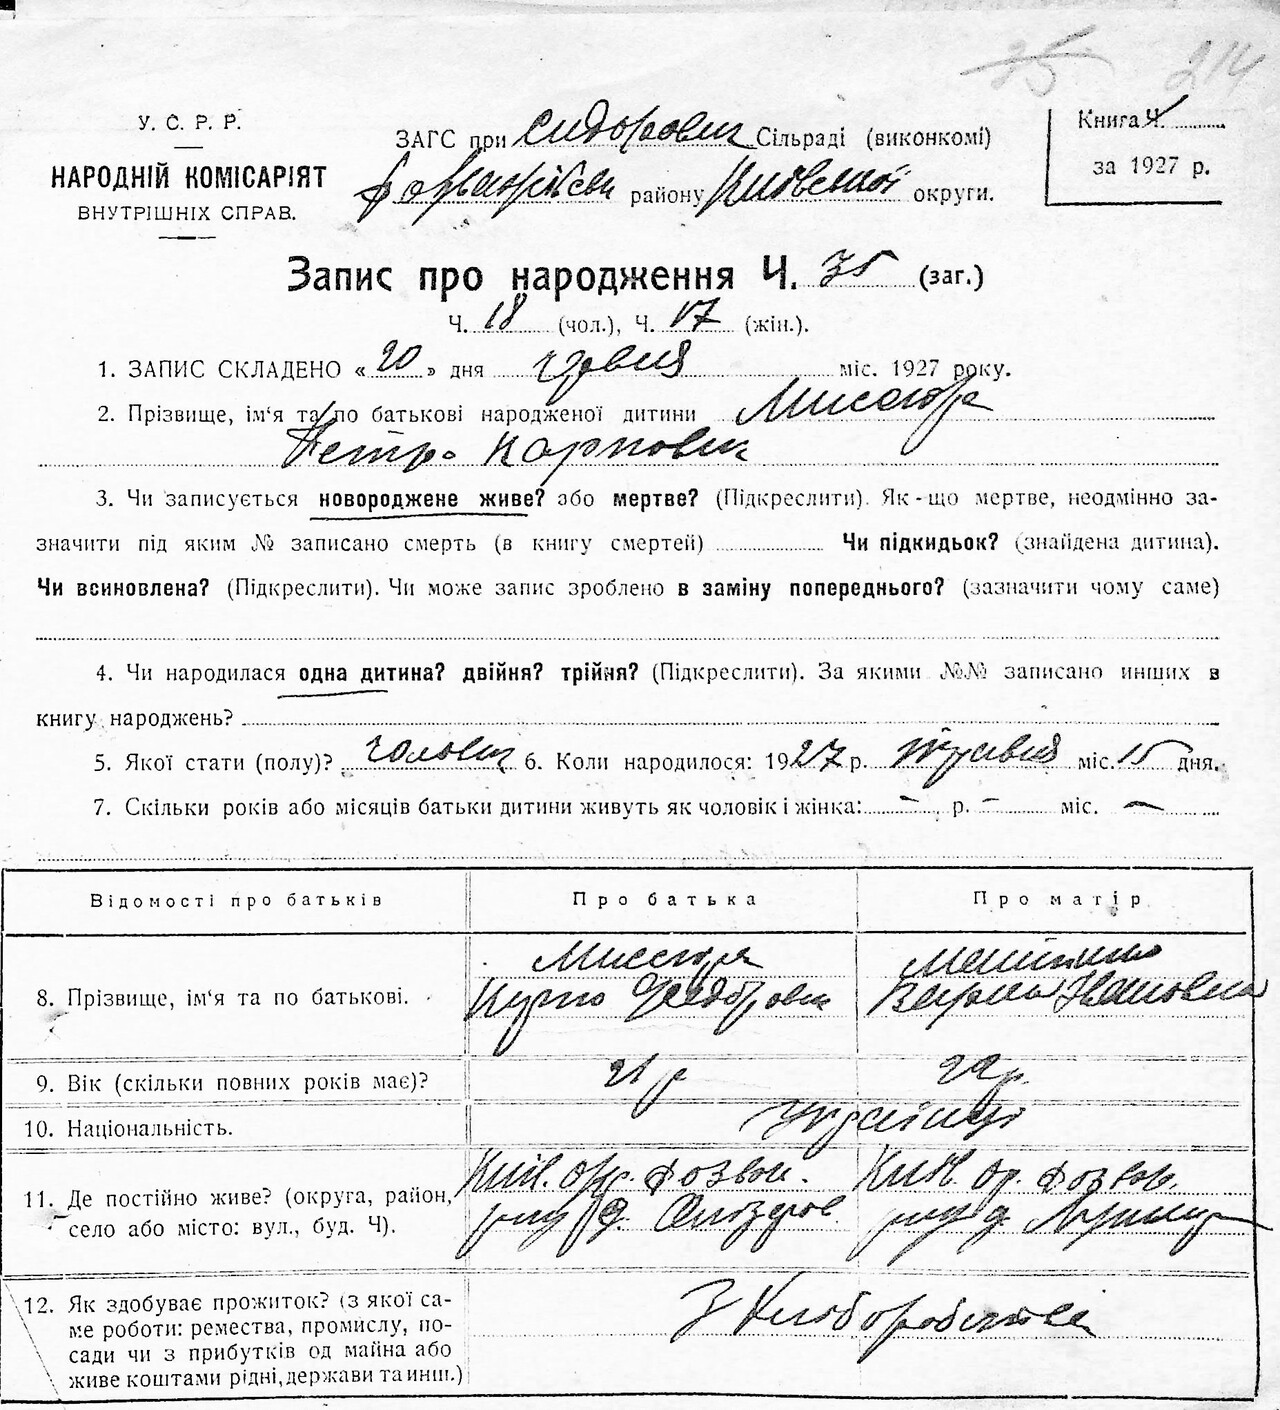 35 214
У. С. Р. Р.
НАРОДНІЙ КОМІСАРІЯТ
ВНУТРІШНІХ СПРАВ.
ЗАГС при Сидорович Сільраді (виконкомі)
району Київської округи.
Книга Ч.
за 1927 р.
Запис про народження Ч. 35 (заг.)
Ч. 18 (чол.), Ч. 17 (жін.).
1. ЗАПИС СКЛАДЕНО « 20 » дня червня міс. 1927 року.
2. Прізвище, ім‘я та по батькові народженої дитини
Петро Карпович
3. Чи записується новороджене живе? або мертве? (Підкреслити). Як-що мертве, неодмінно за-
значити під яким № записано смерть (в книгу смертей) Чи підкидьок? (знайдена дитина).
Чи всиновлена? (Підкреслити). Чи може запис зроблено в заміну попереднього? (зазначити чому саме)
4. Чи народилася одна дитина? двійня? трійня? (Підкреслити). За якими №№ записано инших в
книгу народжень?
5. Якої стати (полу)? чоловіч 6. Коли народилося: 1927 р. травня міс. 15 дня.
7. Скільки років або місяців батьки дитини живуть як чоловік і жінка: – р. – міс. –
Відомості про батьків Про батька Про матір
8. Прізвище, ім‘я та по батькові.
Федорович Івановна
9. Вік (скільки повних років має)? 21 р 22 р.
10. Національність. українці
11. Де постійно живе? (округа, район,
село або місто: вул., буд. Ч).
Київ. окр. Київ. ок.
12. Як здобуває прожиток? (з якої са-
ме роботи: ремества, промислу, по-
сади чи з прибутків од майна або
живе коштами рідні, держави та инш.)
З хліборобства